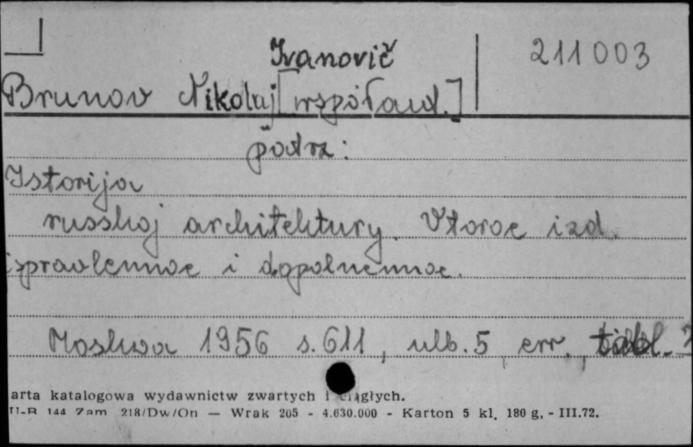 Ivanovič
211003
Brunov Nikolaj [współaut.]
podrz:
Istorija
russkoj architektury. Vtoroe izd.
ispravlennoe i dopolnennoe.
Moskva 1956 s. 611, nlb. 5, err., tabl.
arta katalogowa wydawnictw zwartych i ciągłych.
144 Zam. 218/Dw/On — Wrak 205 - 4.630.000 - Karton 5 kl. 180 g. - III.72.